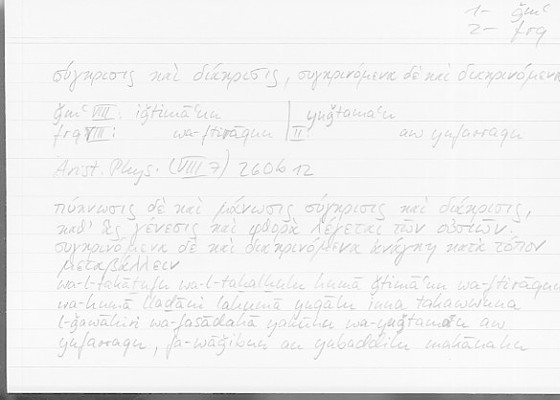 1- ǧmʿ
2- frq
σύγκρισις καὶ διάκρισις, συγκρινόμενα δὲ καὶ διακρινόμενα
ǧmʿ VIII: iǧtimāʿun | yuǧtamaʿu
frq VIII: wa-ftirāqun | II: aw yufarraqu
Arist. Phys. (VIII 7) 260b12
πύκνωσις δὲ καὶ μάνωσις σύγκρισις καὶ διάκρισις,
καθ' ἃς γένεσις καὶ φθορὰ λέγεται τῶν οὐσιῶν.
συγκρινόμενα δὲ καὶ διακρινόμενα ἀνάγκη κατὰ τόπον
μεταβάλλειν
wa-l-takāṯufu wa-l-taḫalḫulu humā ǧtimāʿun wa-ftirāqun
wa-humā lladāni lahumā yuqālu inna takawwuna
l-ǧawāhiri wa-fasādahā yakūnu wa-yuǧtamaʿu aw
yufarraqu, fa-wāǧibun an yubaddilu makānahu